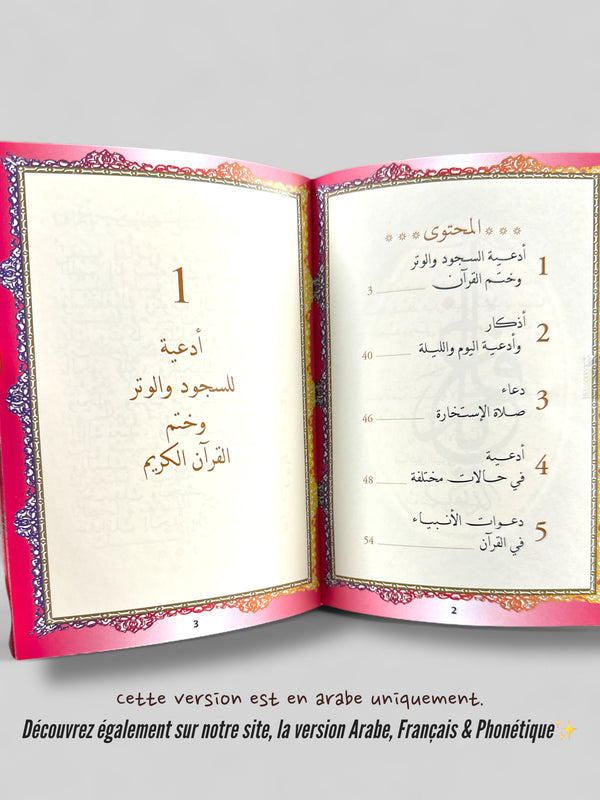 * * * المحتوى * * *
1 أدعية السجود والوتر
وختم القرآن 3
2 أذكار
وأدعية اليوم والليلة 40
3 دعاء
صلاة الإستخارة 46
4 أدعية
في حالات مختلفة 48
5 دعوات الأنبياء
في القرآن 54
2
1
أدعية
للسجود والوتر
وختم
القرآن الكريم
3
cette version est en arabe uniquement.
Découvrez également sur notre site, la version Arabe, Français & Phonétique✨